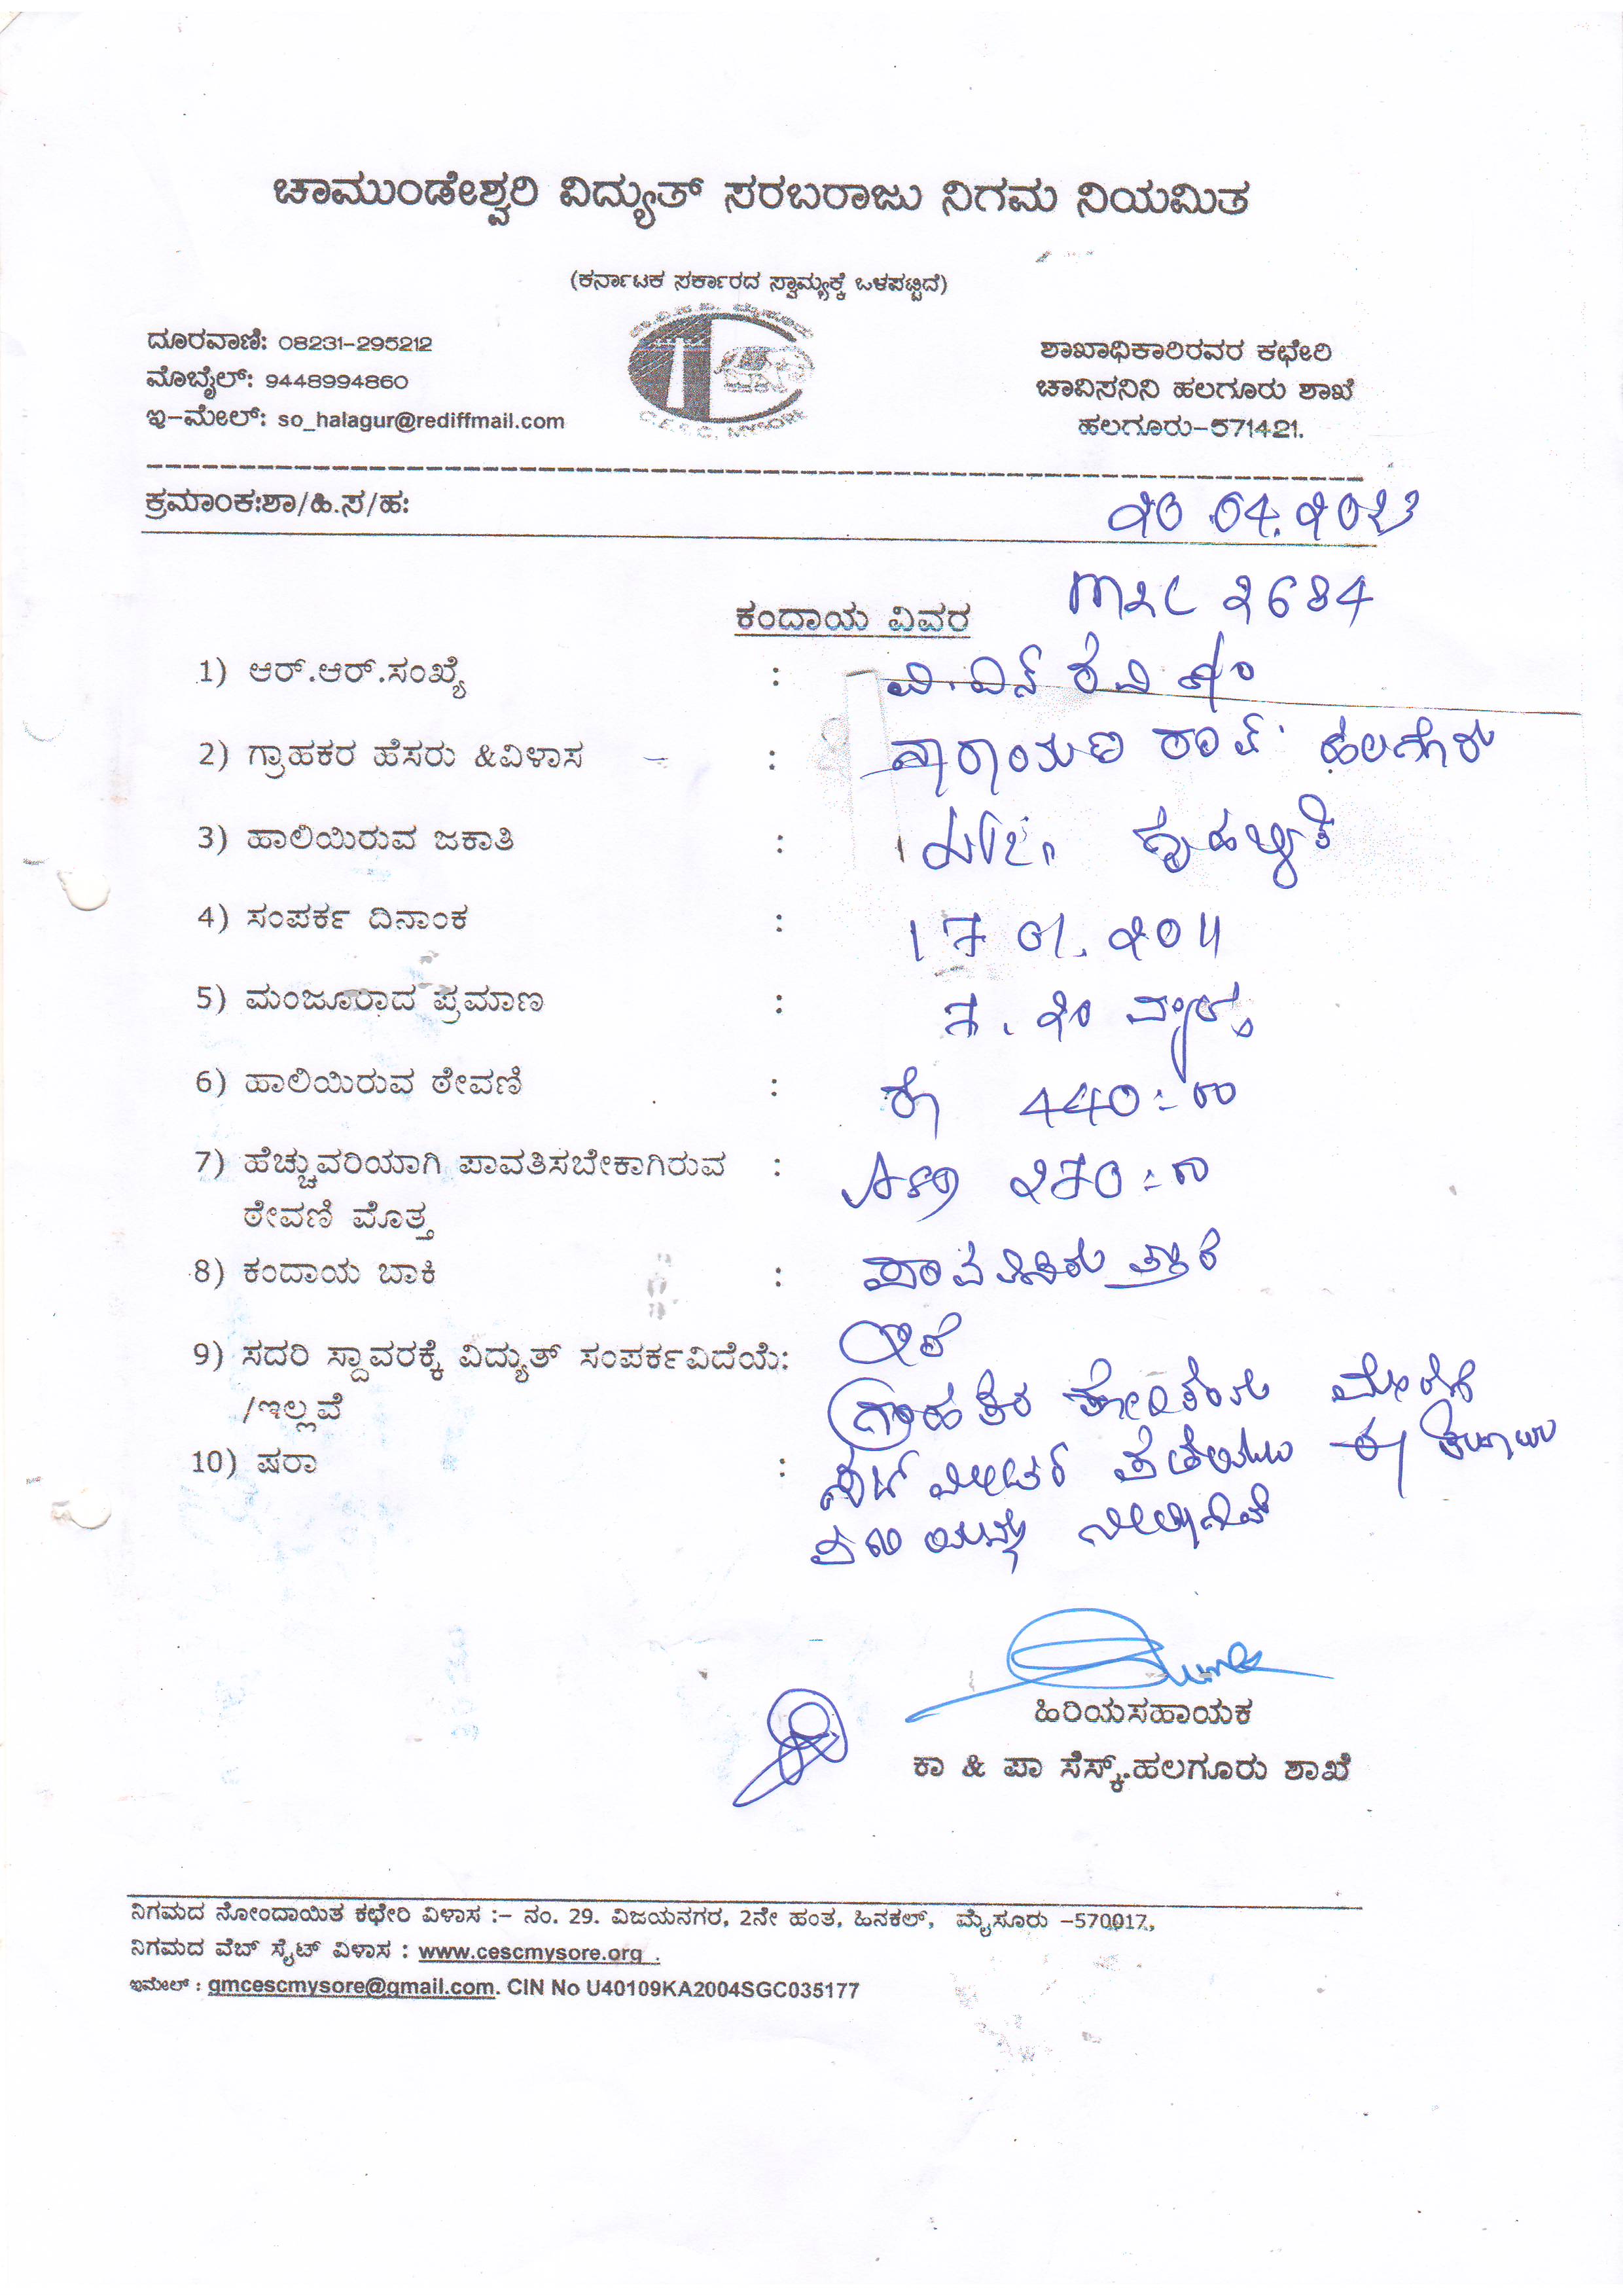 ಚಾಮುಂಡೇಶ್ವರಿ ವಿದ್ಯುತ್ ಸರಬರಾಜು ನಿಗಮ ನಿಯಮಿತ
(ಕರ್ನಾಟಕ ಸರ್ಕಾರದ ಸ್ವಾಮ್ಯಕ್ಕೆ ಒಳಪಟ್ಟಿದೆ)
ದೂರವಾಣಿ: 08231-295212
ಮೊಬೈಲ್: 9448994860
ಇ-ಮೇಲ್: so_halagur@rediffmail.com
C.E.S.C. MYSORE
ಶಾಖಾಧಿಕಾರಿರವರ ಕಛೇರಿ
ಚಾವಿಸನಿನಿ ಹಲಗೂರು ಶಾಖೆ
ಹಲಗೂರು-571421.
ಕ್ರಮಾಂಕ:ಶಾ/ಹಿ.ಸ/ಹ:
20.04.2023
ಕಂದಾಯ ವಿವರ 2684
1) ಆರ್.ಆರ್.ಸಂಖ್ಯೆ : ವಿ.ಎನ್ ರವಿ
2) ಗ್ರಾಹಕರ ಹೆಸರು &ವಿಳಾಸ : ನಾರಾಯಣ ರಾವ್ ಹಲಗೂರು
3) ಹಾಲಿಯಿರುವ ಜಕಾತಿ : ಗೃಹಬಳಕೆ
4) ಸಂಪರ್ಕ ದಿನಾಂಕ : 17 01.2011
5) ಮಂಜೂರಾದ ಪ್ರಮಾಣ :
6) ಹಾಲಿಯಿರುವ ಠೇವಣಿ : ರೂ 440=00
7) ಹೆಚ್ಚುವರಿಯಾಗಿ ಪಾವತಿಸಬೇಕಾಗಿರುವ : 270=00
ಠೇವಣಿ ಮೊತ್ತ
8) ಕಂದಾಯ ಬಾಕಿ : ಪಾವತಿಸಿರುತ್ತಾರೆ
9) ಸದರಿ ಸ್ದಾವರಕ್ಕೆ ವಿದ್ಯುತ್ ಸಂಪರ್ಕವಿದೆಯೆ: ಇದೆ
/ಇಲ್ಲವೆ
10) ಷರಾ : ಗ್ರಾಹಕರ ಕೋರಿಕೆಯ ಮೇರೆಗೆ
ಮೀಟರ್ ಈ
ನೀಡಲಾಗಿದೆ
ಹಿರಿಯಸಹಾಯಕ
ಕಾ & ಪಾ ಸೆಸ್ಕ್.ಹಲಗೂರು ಶಾಖೆ
ನಿಗಮದ ನೋಂದಾಯಿತ ಕಛೇರಿ ವಿಳಾಸ :- ನಂ. 29. ವಿಜಯನಗರ, 2ನೇ ಹಂತ, ಹಿನಕಲ್, ಮೈಸೂರು -570017,
ನಿಗಮದ ವೆಬ್ ಸೈಟ್ ವಿಳಾಸ : www.cescmysore.org .
ಇಮೇಲ್ : gmcescmysore@gmail.com. CIN No U40109KA2004SGC035177